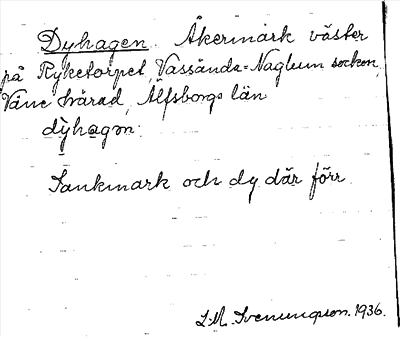 Dyhagen. Åkermark väster
på Ryketorpet, Vassända-Naglum socken,
Väne härad, Älfsborgs län
dỳhagən.
Sankmark och dy där förr
L.M. Svenungsson. 1936.